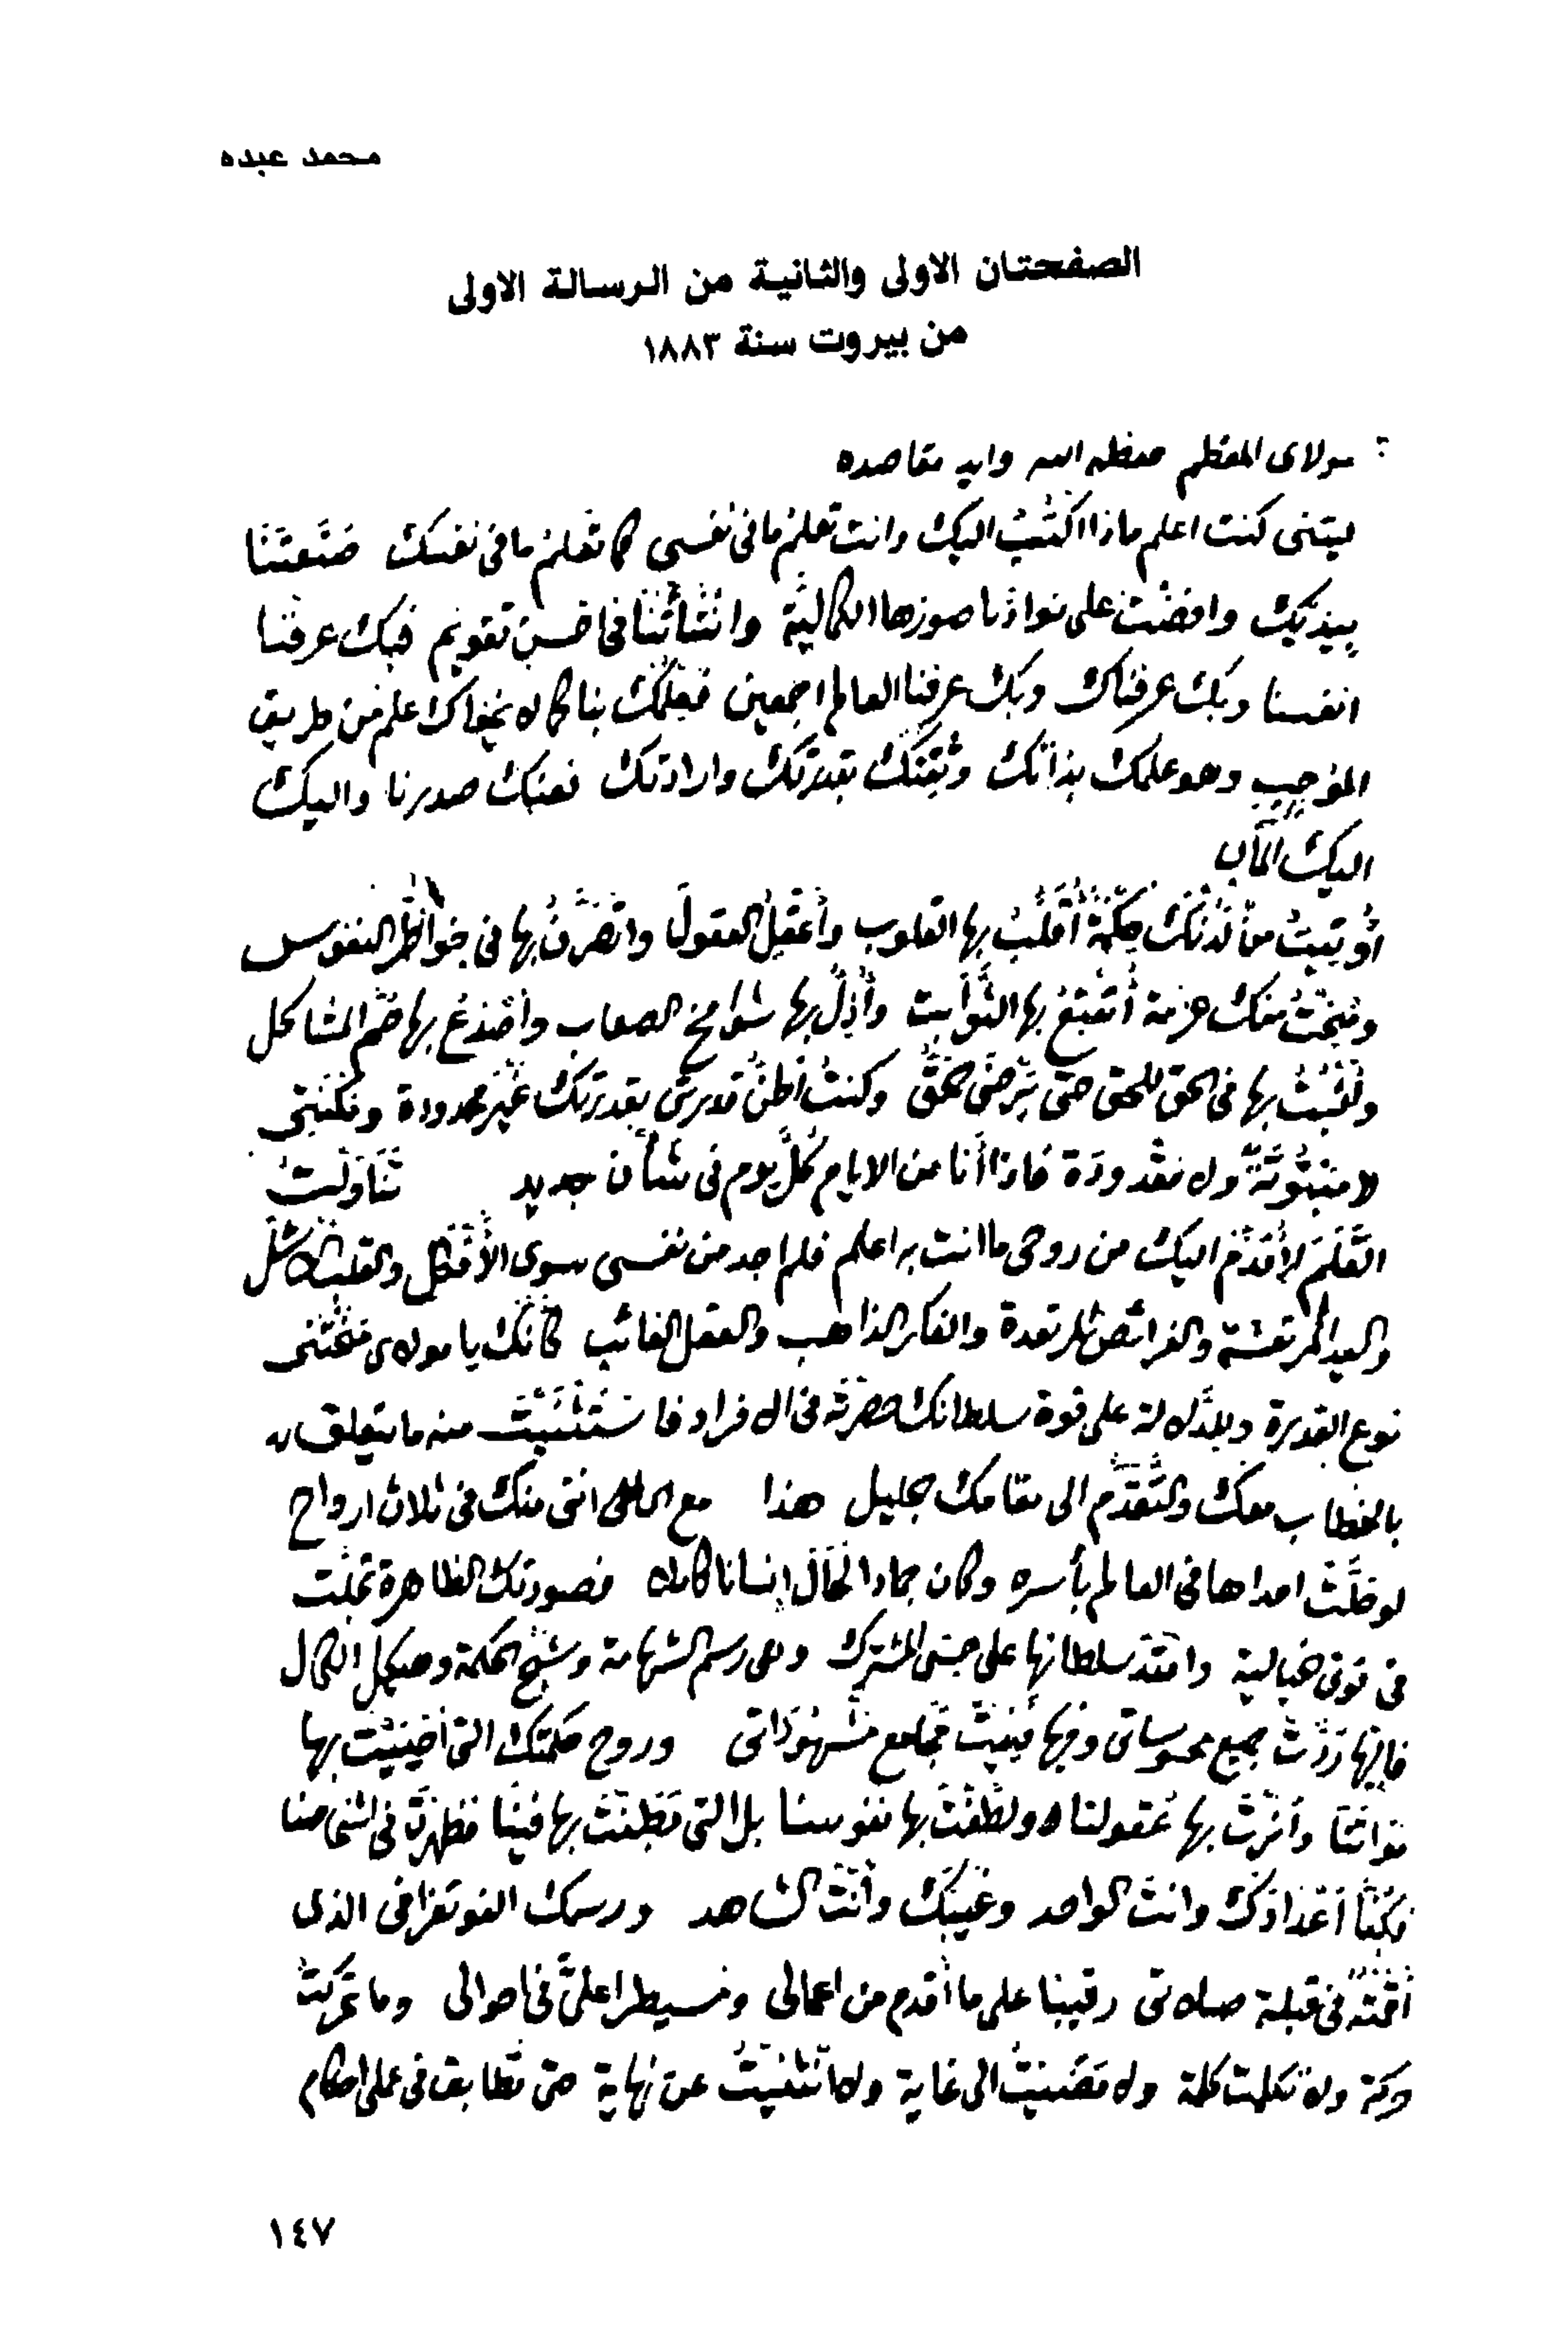 محمد عبده
الصفحتان الاولى والثانية من الرسالة الاولى
من بيروت سنة ١٨٨٣
مولاى المعظم حفظه الله وايد مقاصده
ليتنى كنت اعلم ماذا اكتب اليك وانت تعلم ما فى نفسى كما تعلم ما فى نفسك صنعتنا
بيديك وافضت على موادنا صورها الكمالية وانشأتنا فى احسن تقويم فبك عرفنا
انفسنا وبك عرفناك وبك عرفنا العالم اجمعين فعلمك بنا كما لا يخفاك علم من طريق
الموجب وهو علمك بذاتك وثقتك بقدرتك وارادتك فعنك صدرنا واليك
اليك المآب
أوتيت من لدنك حكمة أقلب بها القلوب وأعقل العقول واتصرف بها فى خواطر النفوس
ومنحت منك عزمة أتعتع بها الثوابت وأذل بها شوامخ الصعاب وأصدع بها صم المشاكل
وأثبت بها فى الحق للحق حتى يرضى الحق وكنت أظن قدرتى بقدرتك غير محدودة ومكنتى
لا مبتوتة ولا مقدودة فاذا أنا من الايام كل يوم فى شأن جديد تناولت
القلم لأقدم اليك من روحى ما انت به اعلم فلم اجد من نفسى سوى الأفكل والقلب الاشل
واليد المرتعشة والفرائص المرتعدة والفكر الذاهب والعقل الغائب كأنك يا مولاى منحتنى
نوع القدرة وللدلالة على قوة سلطانك حصرته فى الافراد فاستثنيت منه ما يتعلق
بالخطاب معك والتقدم الى مقامك الجليل هذا مع اننى منك فى ثلاث ارواح
لو حلت احداها فى العالم بأسره وكان جمادا لحال إنسانا كاملا فصورتك الظاهرة تجلت
فى قوتى الخيالية وامتد سلطانها على حسى المشترك وهى رسم الشهامة وشبح الحكمة وهيكل الكمال
فاليها ردت جميع محسوساتى وفيها فنيت مجامع مشهوداتى وروح حكمتك التى أحييت بها
مواتنا وأنرت بها عقولنا ولطفت بها نفوسنا بل التى بطنت بها فينا فظهرت فى اشخاصنا
فكنا أعدادك وانت الواحد وغيبك وأنت الشاهد ورسمك الفوتغرافى الذى
أقمته فى قبلة صلاتى رقيبا على ما أقدم من اعمالى ومسيطرا على فى احوالى وما تحركت
حركة ولا تكلمت كلمة ولا مضيت الى غاية ولا انثنيت عن نهاية حتى تطابق فى عملى احكام
١٤٧